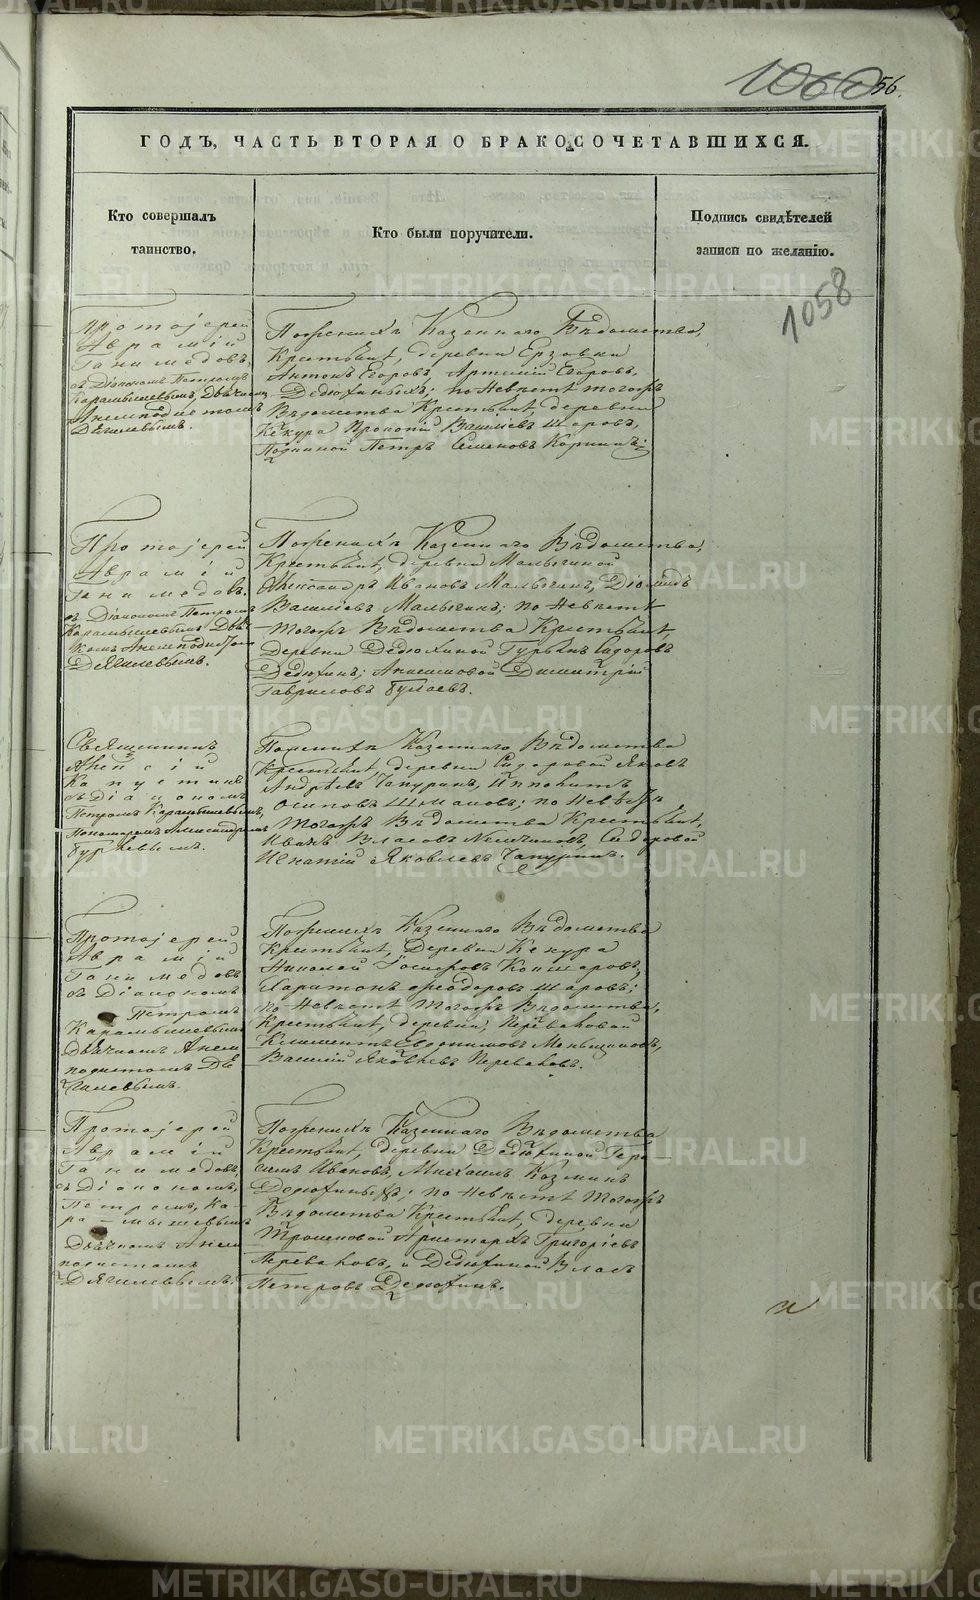 METRIKI.GASO-URAL.RU
1060
56.
ГОДЪ, ЧАСТЬ ВТОРАЯ О БРАКОСОЧЕТАВШИХСЯ.
Кто совершалъ
таинство.
Кто были поручители.
Подпись свидѣтелей
записи по желанію.
1058
Протоіерей
Аврамій
Ганимедовъ,
съ Діакономъ Петромъ
Карамышевымъ, Дьячкомъ
Анемподистомъ
Дягилевымъ.
По женихѣ Казеннаго Вѣдомства,
Крестьяне, деревни Ерзовки
Антонъ Егоровъ, Артемій Егоровъ,
Дедюхины; по Невѣстѣ тогожъ
Вѣдомства Крестьяне, деревни
Кекура Прокопій Васильевъ Шаровъ,
Петръ Семеновъ
Протоіерей
Аврамій
Ганимедовъ,
съ Діакономъ Петромъ
Карамышевымъ Дьяч-
комъ Анемподистомъ
Дягилевымъ.
По женихѣ Казеннаго Вѣдомства,
Крестьяне, деревни Малыгиной
Александръ Ивановъ Малыгинъ, Діомидъ
Васильевъ Малыгинъ; по Невѣстѣ
тогожъ Вѣдомства Крестьяне,
деревни Дедюхиной Гурьянъ Сидоровъ
Дедюхинъ; Димитрій
Гавриловъ
Священникъ
Алексій
Капустинъ
съ Діакономъ
Петромъ Карамышевымъ,
Пономаремъ Александромъ
По женихѣ Казеннаго Вѣдомства
Крестьяне, деревни Сидоровой Яковъ
Андреевъ Чапуринъ, Ипполитъ
Осиповъ по Невѣстѣ
тогожъ Вѣдомства Крестьяне,
Иванъ Власовъ Сидоровой
Игнатій Яковлевъ Чапуринъ.
Протоіерей
Аврамій
Ганимедовъ
съ Діакономъ
Петромъ
Карамышевымъ
Дьячкомъ Анем
подистомъ Дя
гилевымъ.
По женихѣ Казеннаго Вѣдомства
Крестьяне, деревни Кекура
Николай
Харитонъ Ѳеодоровъ Шаровъ;
по Невѣстѣ тогожъ Вѣдомства,
Крестьяне, деревни Переваловой
Климентъ Евдокимовъ Меньщиковъ,
Василій Яковлевъ Переваловъ.
Протоіерей
Аврамій
Ганимедовъ
съ Діакономъ,
Петромъ, Ка-
ра-мышевымъ
Дьячкомъ Анем
подистомъ
Дягилевымъ.
По женихѣ Казеннаго Вѣдомства
Крестьяне, деревни Дедюхиной Гера-
симъ Ивановъ, Михаилъ Козминъ
Дедюхины; по Невѣстѣ тогожъ
Вѣдомства Крестьяне, деревни
Трошковой Аристархъ Григорьевъ
Переваловъ, и Дедюхиной Власъ
Петровъ Дедюхинъ.